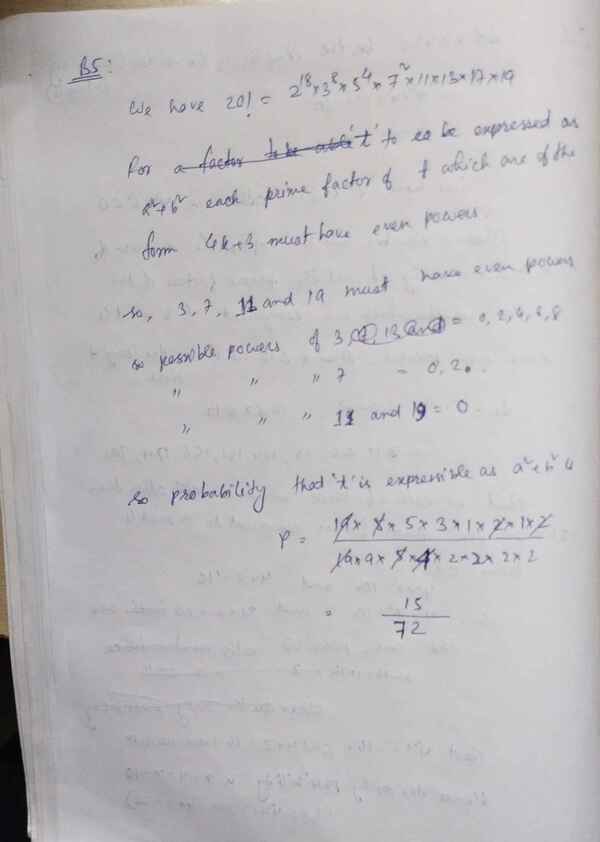 B5:
We have 20! = 2^18 × 3^8 × 5^4 × 7^2 × 11 × 13 × 17 × 19
For a factor to be able 't' to be expressed as
a²+b² each prime factor of t which are of the
form 4k+3 must have even powers.
so, 3, 7, 11 and 19 must have even powers
so possible powers of 3 = 0, 2, 4, 6, 8
" " " 7 = 0, 2.
" " " 11 and 19 = 0.
so probability that 't' is expressible as a²+b² is
P = 19 × 5 × 3 × 1 × 2 × 1 × 2
19 × 9 × 5 × 2 × 2 × 2 × 2
= 15
72